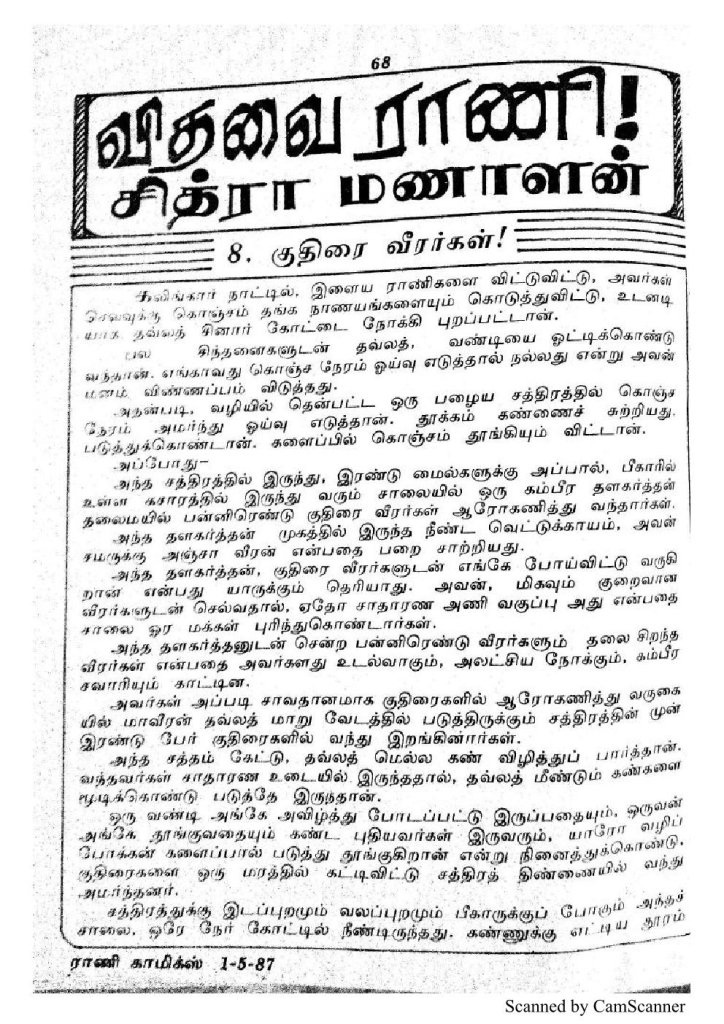 68
விதவை ராணி!
சித்ரா மணாளன்
8. குதிரை வீரர்கள்!
கலிங்கார் நாட்டில், இளைய ராணிகளை விட்டுவிட்டு, அவர்கள்
செலவுக்கு கொஞ்சம் தங்க நாணயங்களையும் கொடுத்துவிட்டு, உடனடி
யாக தவ்லத் சினார் கோட்டை நோக்கி புறப்பட்டான்.
பல சிந்தனைகளுடன் தவ்லத், வண்டியை ஓட்டிக்கொண்டு
வந்தான். எங்காவது கொஞ்ச நேரம் ஓய்வு எடுத்தால் நல்லது என்று அவன்
மனம் விண்ணப்பம் விடுத்தது.
அதன்படி, வழியில் தென்பட்ட ஒரு பழைய சத்திரத்தில் கொஞ்ச
நேரம் அமர்ந்து ஓய்வு எடுத்தான். தூக்கம் கண்ணைச் சுற்றியது.
படுத்துக்கொண்டான். களைப்பில் கொஞ்சம் தூங்கியும் விட்டான்.
அப்போது—
அந்த சத்திரத்தில் இருந்து, இரண்டு மைல்களுக்கு அப்பால், பீகாரில்
உள்ள கசாரத்தில் இருந்து வரும் சாலையில் ஒரு கம்பீர தளகர்த்தன்
தலைமயில் பன்னிரெண்டு குதிரை வீரர்கள் ஆரோகணித்து வந்தார்கள்.
அந்த தளகர்த்தன் முகத்தில் இருந்த நீண்ட வெட்டுக்காயம், அவன்
சமருக்கு அஞ்சா வீரன் என்பதை பறை சாற்றியது.
அந்த தளகர்த்தன், குதிரை வீரர்களுடன் எங்கே போய்விட்டு வருகி
றான் என்பது யாருக்கும் தெரியாது. அவன், மிகவும் குறைவான
வீரர்களுடன் செல்வதால், ஏதோ சாதாரண அணி வகுப்பு அது என்பதை
சாலை ஓர மக்கள் புரிந்துகொண்டார்கள்.
அந்த தளகர்த்தனுடன் சென்ற பன்னிரெண்டு வீரர்களும் தலை சிறந்த
வீரர்கள் என்பதை அவர்களது உடல்வாகும், அலட்சிய நோக்கும், கம்பீர
சவாரியும் காட்டின.
அவர்கள் அப்படி சாவதானமாக குதிரைகளில் ஆரோகணித்து வருகை
யில் மாவீரன் தவ்லத் மாறு வேடத்தில் படுத்திருக்கும் சத்திரத்தின் முன்
இரண்டு பேர் குதிரைகளில் வந்து இறங்கினார்கள்.
அந்த சத்தம் கேட்டு, தவ்லத் மெல்ல கண் விழித்துப் பார்த்தான்.
வந்தவர்கள் சாதாரண உடையில் இருந்ததால், தவ்லத் மீண்டும் கண்களை
மூடிக்கொண்டு படுத்தே இருந்தான்.
ஒரு வண்டி அங்கே அவிழ்த்து போடப்பட்டு இருப்பதையும், ஒருவன்
அங்கே தூங்குவதையும் கண்ட புதியவர்கள் இருவரும், யாரோ வழிப்
போக்கன் களைப்பால் படுத்து தூங்குகிறான் என்று நினைத்துக்கொண்டு,
குதிரைகளை ஒரு மரத்தில் கட்டிவிட்டு சத்திரத் திண்ணையில் வந்து
அமர்ந்தனர்.
சத்திரத்துக்கு இடப்புறமும் வலப்புறமும் பீகாருக்குப் போகும் அந்தச்
சாலை, ஒரே நேர் கோட்டில் நீண்டிருந்தது. கண்ணுக்கு எட்டிய தூரம்
ராணி காமிக்ஸ் 1-5-87
Scanned by CamScanner